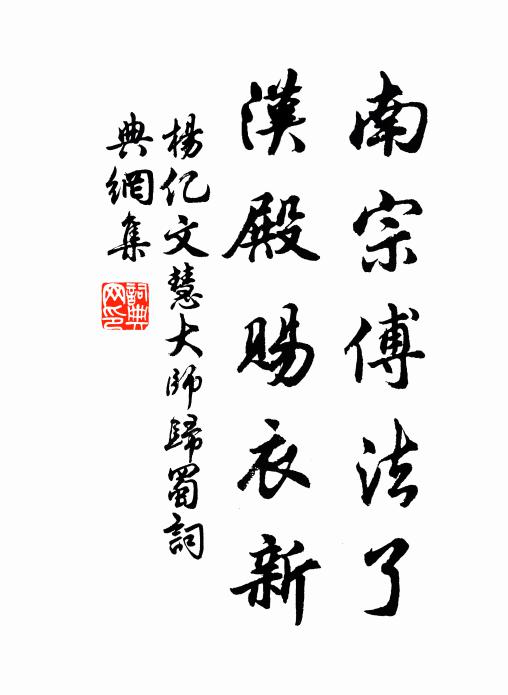 南宗傅法了
漢殿賜衣新
楊亿文慧大師歸蜀詞
典網集
詞典
网印